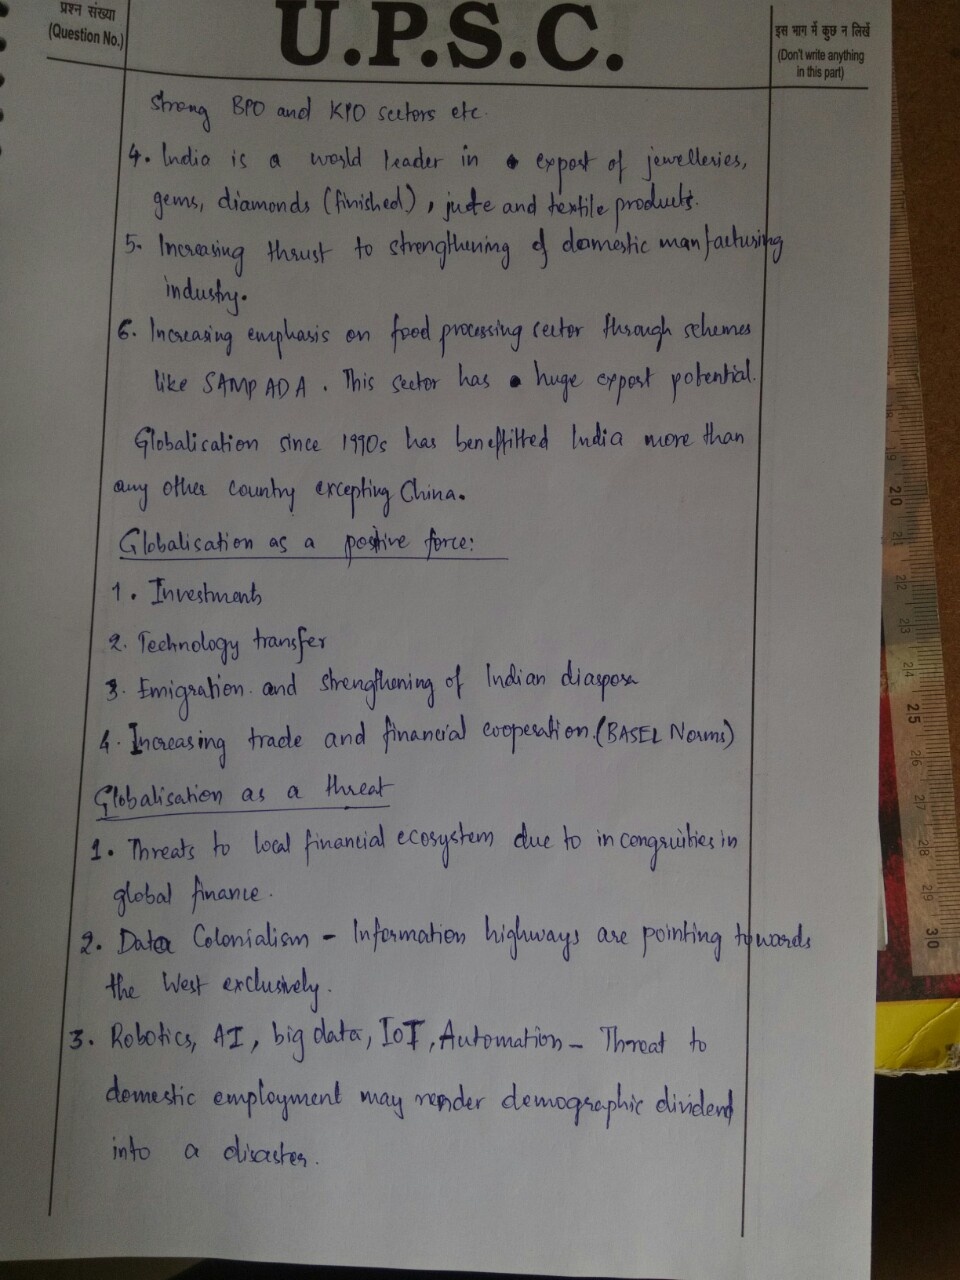 प्रश्न संख्या
(Question No.)
U.P.S.C.
इस भाग में कुछ न लिखें
(Don't write anything
in this part)
strong BPO and KPO sectors etc.
4. India is a world leader in export of jewelleries,
gems, diamonds (finished), jute and textile products.
5. Increasing thrust to strengthening of domestic manfacturing
industry.
6. Increasing emphasis on food processing sector through schemes
like SAMPADA. This sector has huge export potential.
Globalisation since 1990s has benefitted India more than
any other country excepting China.
Globalisation as a positive force:
1. Investments
2. Technology transfer
3. Emigration and strengthening of Indian diaspora
4. Increasing trade and financial cooperation. (BASEL Norms)
Globalisation as a threat
1. Threats to local financial ecosystem due to incongruities in
global finance.
2. Data Colonialism - Information highways are pointing towards
the West exclusively.
3. Robotics, AI, big data, IoT, Automation - Threat to
domestic employment may render demographic dividend
into a disaster.
18
19
20
21
22
23
24
25
26
27
28
29
30